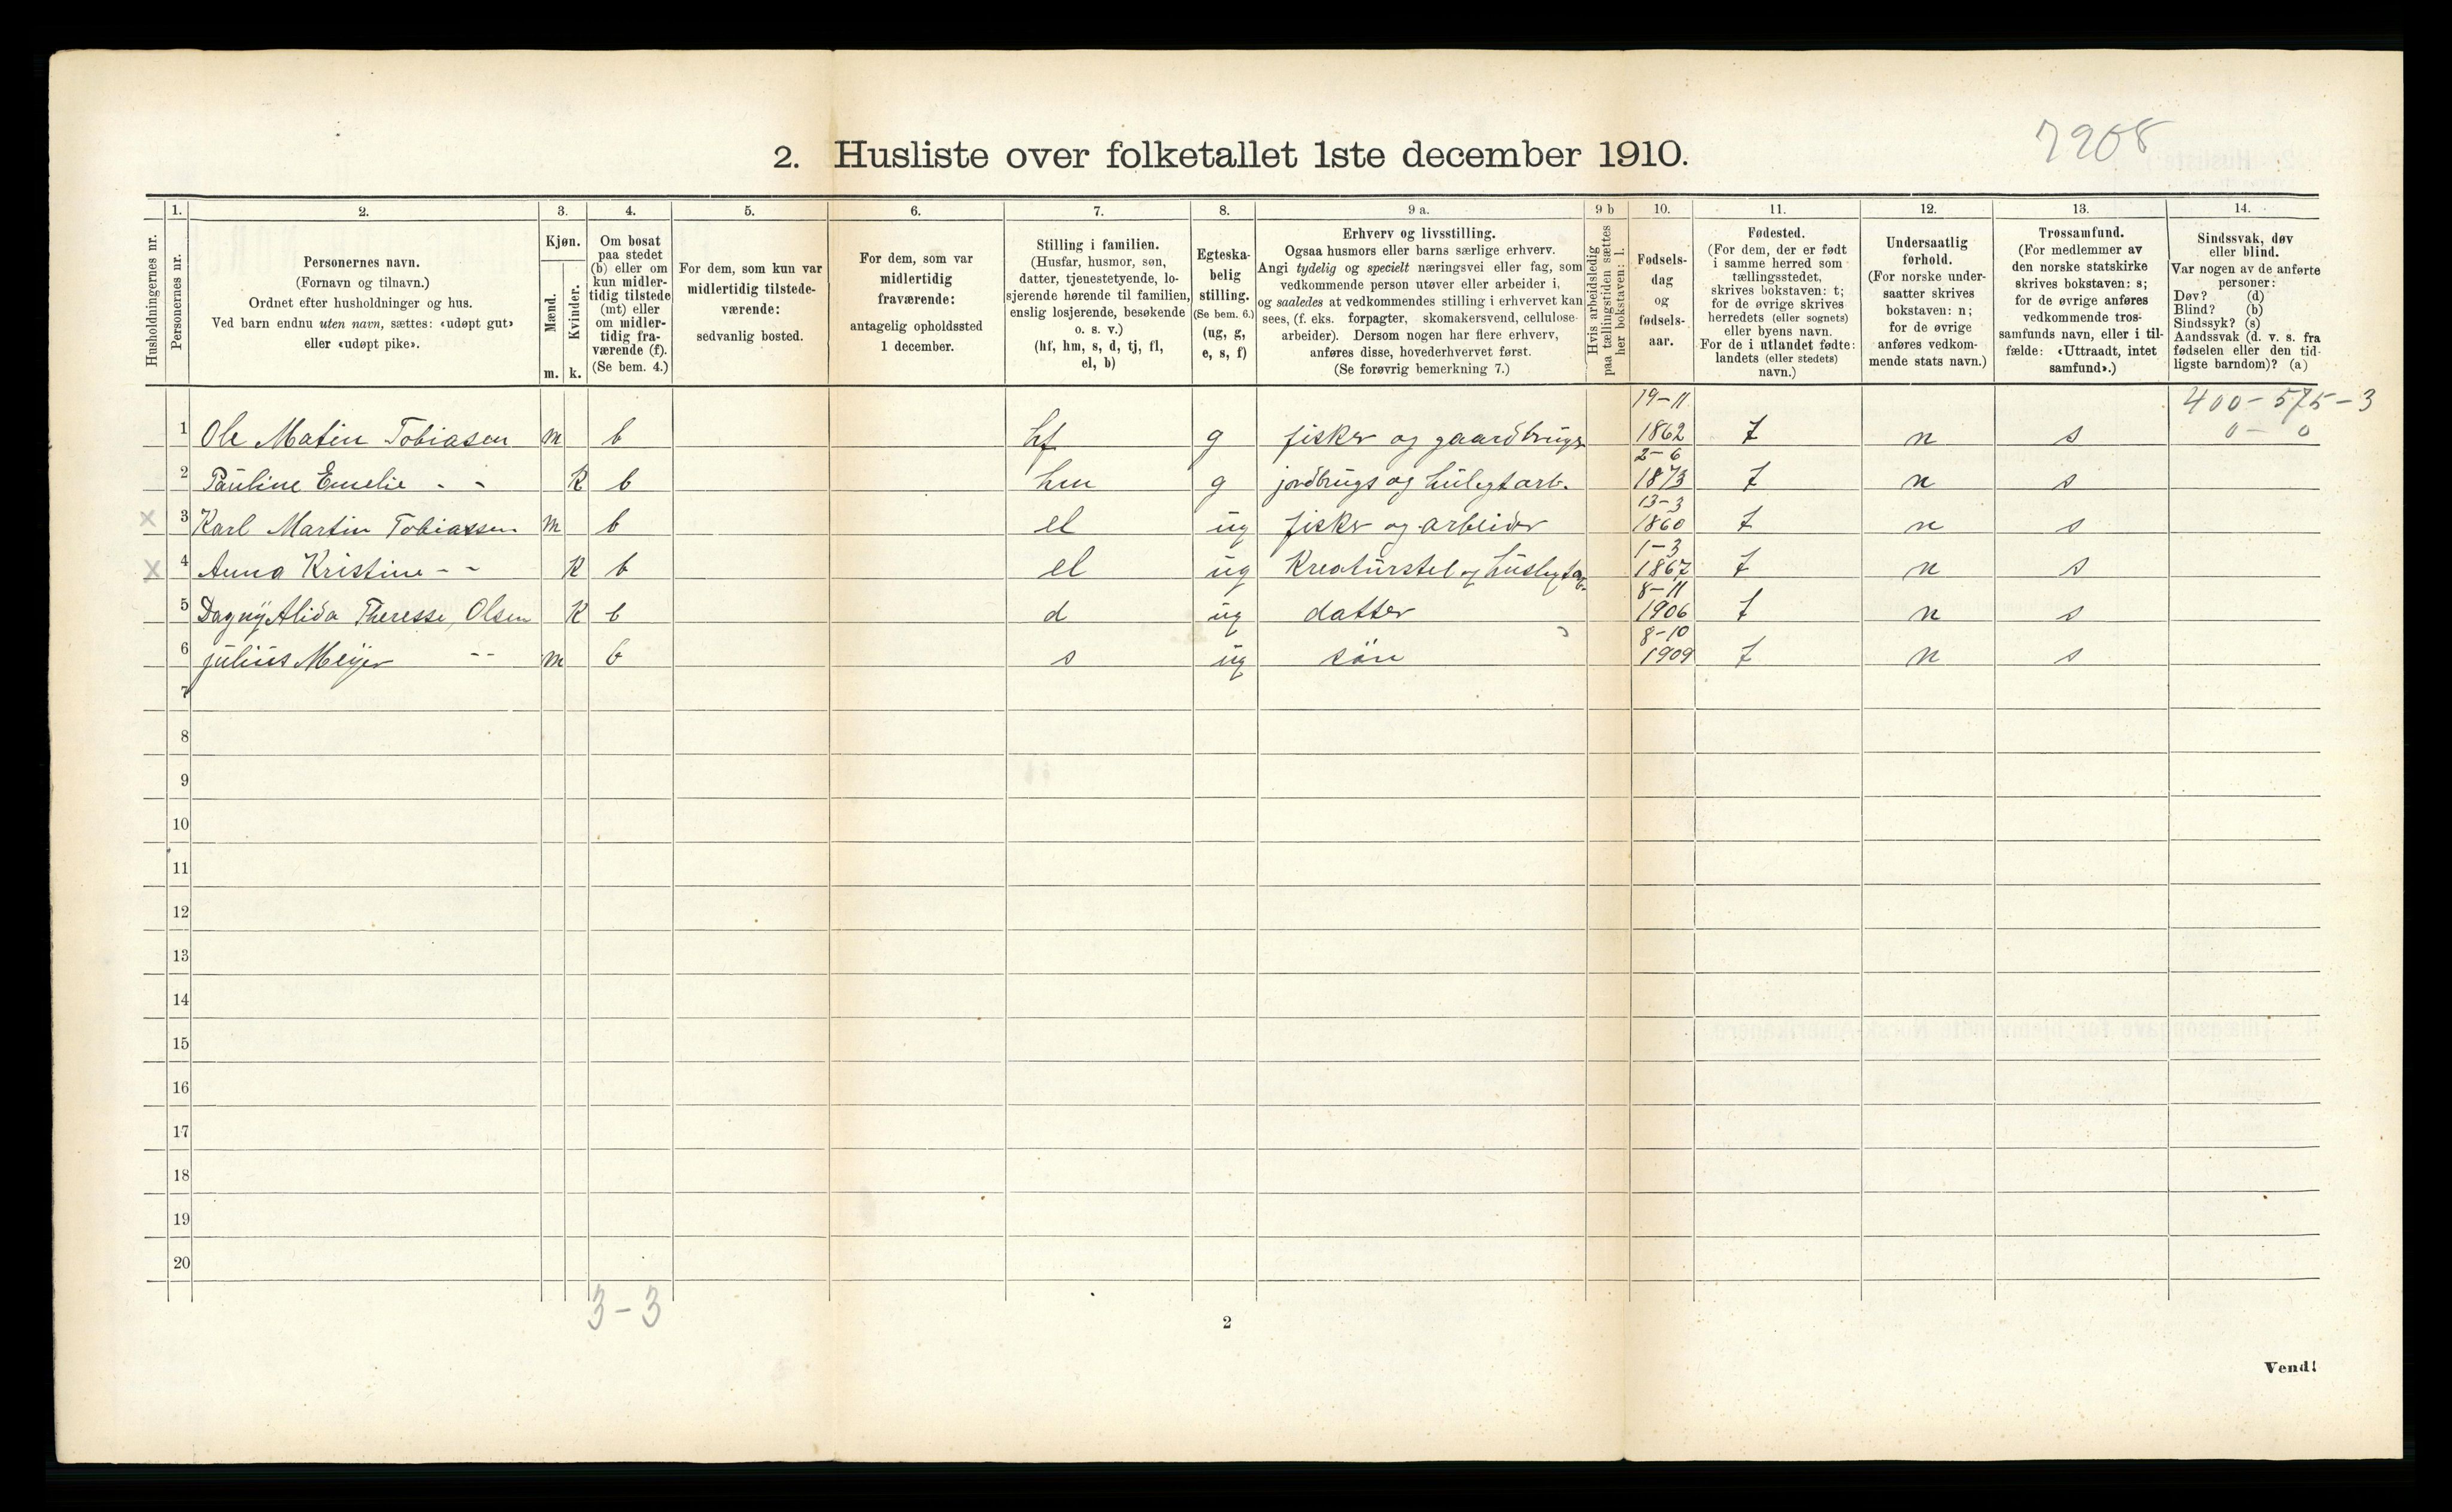 7208
2. Husliste over folketallet 1ste december 1910.
Husholdningernes nr.
1. Personernes nr.
2. Personernes navn.
(Fornavn og tilnavn.)
Ordnet efter husholdninger og hus.
Ved barn endnu uten navn, sættes: «udøpt gut»
eller «udøpt pike».
3. Kjøn.
Mænd. m.
Kvinder. k.
4. Om bosat
paa stedet
(b) eller om
kun midler-
tidig tilstede
(mt) eller
om midler-
tidig fra-
værende (f).
(Se bem. 4.)
5. For dem, som kun var
midlertidig tilstede-
værende:
sedvanlig bosted.
6. For dem, som var
midlertidig
fraværende:
antagelig opholdssted
1 december.
7. Stilling i familien.
(Husfar, husmor, søn,
datter, tjenestetyende, lo-
sjerende hørende til familien,
enslig losjerende, besøkende
o. s. v.)
(hf, hm, s, d, tj, fl,
el, b)
8. Egteska-
belig
stilling.
(Se bem. 6.)
(ug, g,
e, s, f)
9 a. Erhverv og livsstilling.
Ogsaa husmors eller barns særlige erhverv.
Angi tydelig og specielt næringsvei eller fag, som
vedkommende person utøver eller arbeider i,
og saaledes at vedkommendes stilling i erhvervet kan
sees, (f. eks. forpagter, skomakersvend, cellulose-
arbeider). Dersom nogen har flere erhverv,
anføres disse, hovederhvervet først.
(Se forøvrig bemerkning 7.)
9 b Hvis arbeidsledig
paa tællingstiden sættes
her bokstaven: l.
10. Fødsels-
dag
og
fødsels-
aar.
11. Fødested.
(For dem, der er født
i samme herred som
tællingsstedet,
skrives bokstaven: t;
for de øvrige skrives
herredets (eller sognets)
eller byens navn.
For de i utlandet fødte:
landets (eller stedets)
navn.)
12. Undersaatlig
forhold.
(For norske under-
saatter skrives
bokstaven: n;
for de øvrige
anføres vedkom-
mende stats navn.)
13. Trossamfund.
(For medlemmer av
den norske statskirke
skrives bokstaven: s;
for de øvrige anføres
vedkommende tros-
samfunds navn, eller i til-
fælde: «Uttraadt, intet
samfund».)
14. Sindssvak, døv
eller blind.
Var nogen av de anførte
personer:
Døv? (d)
Blind? (b)
Sindssyk? (s)
Aandssvak (d. v. s. fra
fødselen eller den tid-
ligste barndom)? (a)
400-575-3
0-0
1 Ole Matin Tobiasen m b hf g fisker og gaardbruger 19-11 1862 t n s
2 Pauline Emelie - - k b hm g jordbrugs og huslygt arb. 2-6 1873 t n s
x 3 Karl Martin Tobiassen m b el ug fisker og arbeider 13-3 1860 t n s
x 4 Anna Kristine - - k b el ug Kreaturstel og huslygt arb. 1-3 1867 t n s
5 Dagny Alida Theresse, Olsen k b d ug datter 8-11 1906 t n s
6 Julius Meyer - - m b s ug søn 8-10 1909 t n s
7
8
9
10
11
12
13
14
15
16
17
18
19
20
3-3
2
Vend!